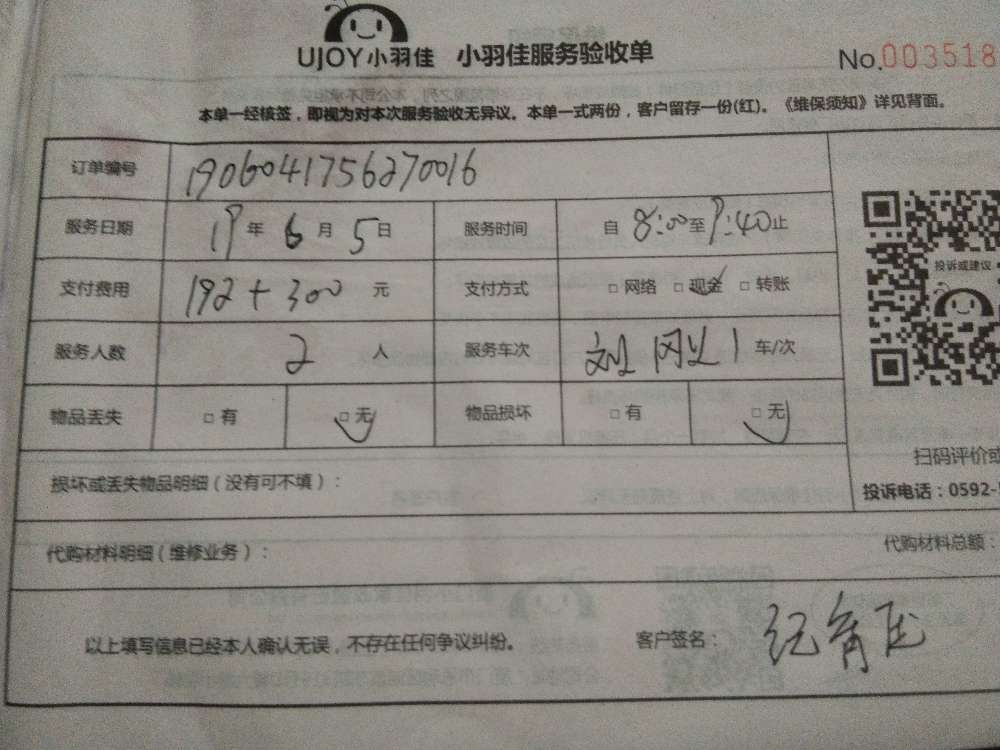 UJOY小羽佳 小羽佳服务验收单 No.003518
本单一经核签，即视为对本次服务验收无异议。本单一式两份，客户留存一份(红)。《维保须知》详见背面。
订单编号 1906041756270016
服务日期 19年6月5日 服务时间 自8:00至9:40止
投诉或建议
支付费用 192+300 元 支付方式 □网络 □现金 □转账
服务人数 2 人 服务车次 刘 1 车/次
物品丢失 □有 □无 物品损坏 □有 □无
扫码评价或
损坏或丢失物品明细（没有可不填）：
投诉电话：0592-
代购材料明细（维修业务）： 代购材料总额：
以上填写信息已经本人确认无误，不存在任何争议纠纷。 客户签名：纪